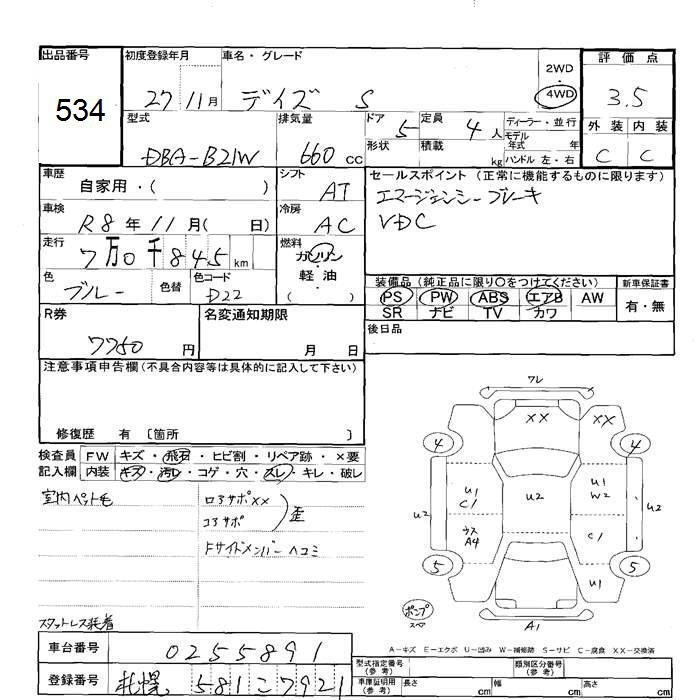 出品番号
534
初度登録年月 27 11月
車名・グレード デイズ S
2WD
・
4WD
評価点
3.5
外装 内装
C C
型式 DBA-B21W
排気量 660 CC
ドア 5
形状
定員 4 人
積載 kg
ディーラー・並行
モデル年式 年
ハンドル 左・右
車歴 自家用・( )
シフト AT
セールスポイント (正常に機能するものに限ります)
エマージェンシーブレーキ
VDC
車検 R8年11月( 日)
冷房 AC
走行 7万0千845km
燃料 ガソリン
軽油
( )
色 ブルー
色替
色コード D22
装備品 (純正品に限り〇をつけてください)
PS PW ABS エアB AW
SR ナビ TV カワ
新車保証書
有・無
後日品
R券 7750 円
名変通知期限
月 日
注意事項申告欄 (不具合内容等は具体的に記入して下さい)
修復歴 有 〔箇所 〕
検査員 FW キズ・飛石・ヒビ割・リペア跡・×要
記入欄 内装 キズ・汚レ・コゲ・穴・スレ・キレ・破レ
室内ペット毛
ロアサポXX
コアサポ
歪
Fサイドメンバーヘコミ
スタットレス装着
ワレ
XX XX
4 4
U1
C1
U2
U1
W2
U2 U2
ウス
A4
C1
5 5
U1
ポンプ
スペア
A1
A-キズ E-エクボ U-凹み W-補修跡 S-サビ C-腐食 XX-交換済
車台番号 0255891
登録番号 札幌 581 こ 7921
型式指定番号
(参考)
類別区分番号
(参考)
車庫証明用
(参考)
長さ cm 幅 cm 高さ cm